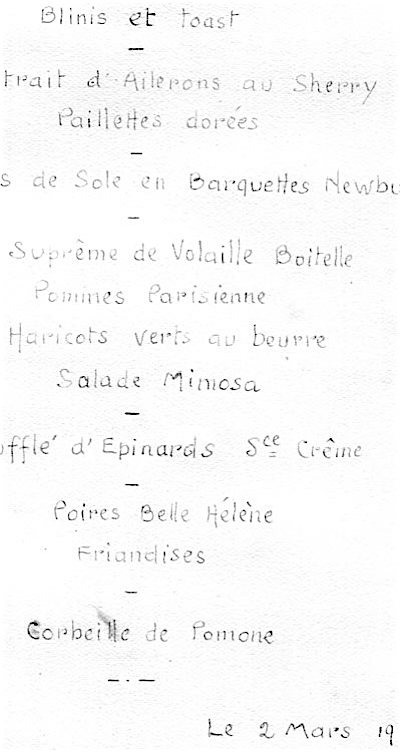 Blinis et toast
trait d'Ailerons au Sherry
Paillettes dorées
s de Sole en Barquettes Newbu
Suprême de Volaille Boitelle
Pommes Parisienne
Haricots verts au beurre
Salade Mimosa
ufflé d'Epinards Sce Crême
Poires Belle Hélène
Friandises
Corbeille de Pomone
Le 2 Mars 19